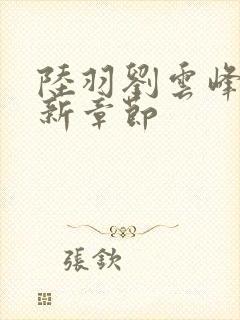 陸羽劉雲峰
新章節
張欽